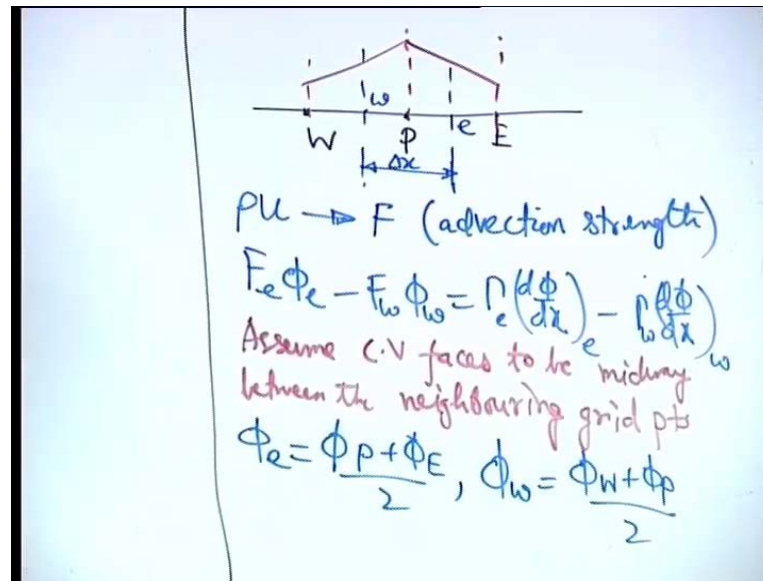 w
W P e E
Δx
ρu → F (advection strength)
F_e ϕ_e − F_w ϕ_w = Γ_e (dϕ/dx)_e − Γ_w (dϕ/dx)_w
Assume C.V faces to be midway
between the neighbouring grid pts
ϕ_e = (ϕ_P + ϕ_E)/2, ϕ_w = (ϕ_W + ϕ_P)/2